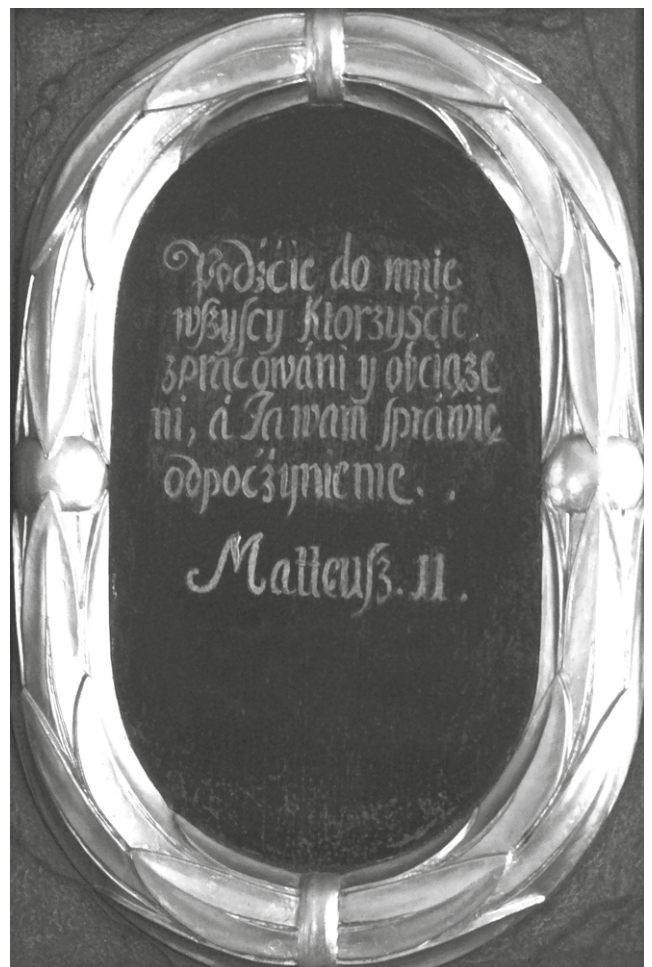 Podźćie do mnie
wſzyſcy Ktorzyśćie
zprácowáni y obćiąże
ni, á Ja wam ſpráwię
odpocżynienie. .
Matteuſz. 11.